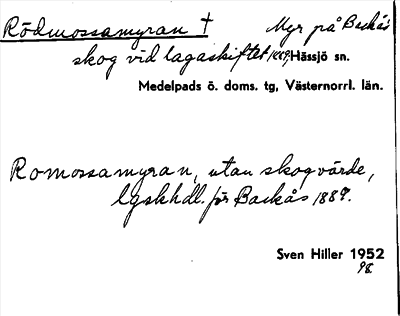 Rödmossamyran † Myr på Backås
skog vid lagaskiftet 1889. Hässjö sn.
Medelpads ö. doms. tg, Västernorrl. län.
Romossamyran, utan skogvärde,
lgskhdl. för Backås 1889.
Sven Hiller 1952
98.